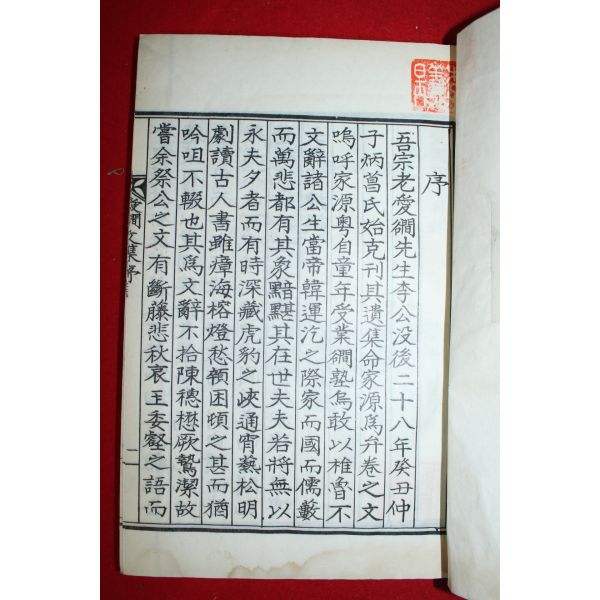 序
吾宗老愛磵先生李公没後二十八年癸丑仲
子炳曷氏始克刊其遺集命家源爲弁卷之文
嗚呼家源粤自童年受業磵塾烏敢以椎魯不
文辭諸公生當帝韓運汔之際家而國而儒藪
而萬悲都有其象黯黮其在世夫夫若將無以
永夫夕者而有時深藏虎豹之峽通宵爇松明
劇讀古人書雖瘴海榕燈愁顇困頓之甚而猶
吟咀不輟也其爲文辭不拾陳穗懋厥鷙潔故
嘗余祭公之文有斷藤悲秋哀王委壑之語而
愛磵文集序
二